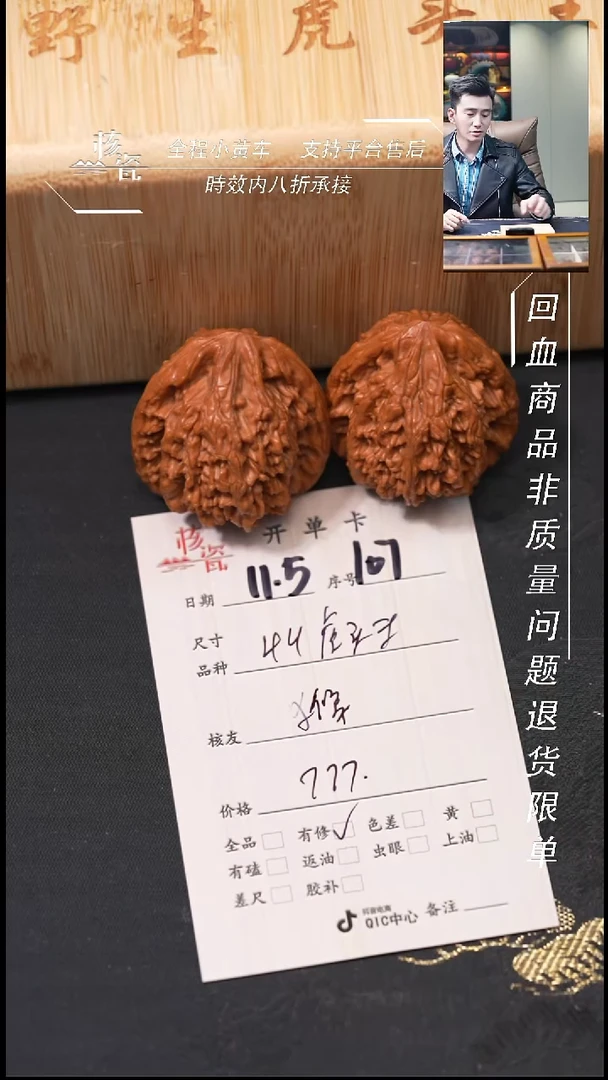 野生虎头
核瓷
全程小黄车 支持平台售后
時效内八折承接
回血商品非质量问题退货限单
核瓷
开单卡
日期 11.5 序号 107
尺寸
品种 44虎头
核友
价格 777.
全品 有修 ✓ 色差 黄
有磕 返油 虫眼 上油
差尺 胶补
抖音电商
QIC中心 备注